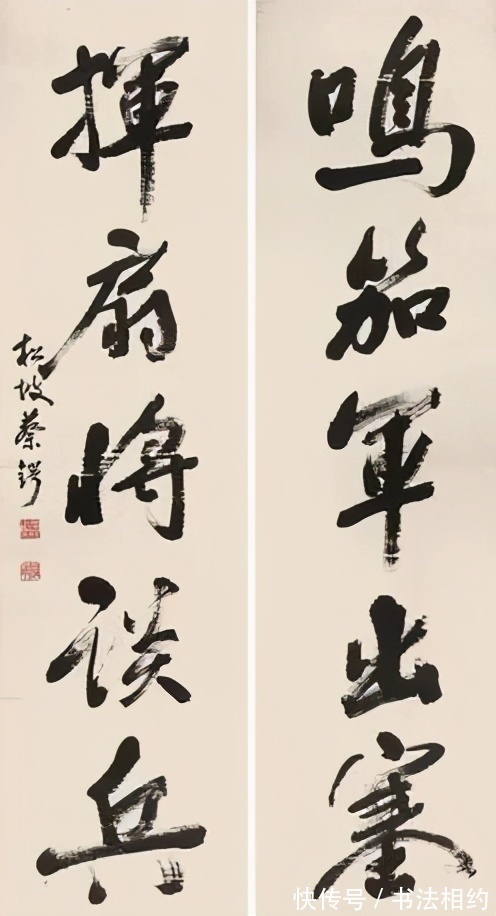 鳴笳軍出塞
揮扇將談兵
松坡蔡鍔
快传号/书法相约